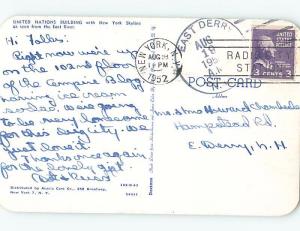 UNITED NATIONS BUILDING with New York Skyline
as seen from the East River.
Hi Folks:
Right now we're up
on the 102nd floor
of the Empire Bldg
having ice cream
sodas. We're going
to be very lonesome
for this big city. We
just love it.
Thanks once again
for the lovely gift.
Distributed by Acacia Card Co., 258 Broadway,
New York 7, N. Y.
NEW YORK, N.Y.
AUG 18
PM
1952
EAST DERRY
AUG
19
195
A.M.
N.H.
3 CENTS 3
POST CARD
Address
Mr. & Mrs Howard Chamberlain
Hampstead Rd.
E. Derry, N. H.